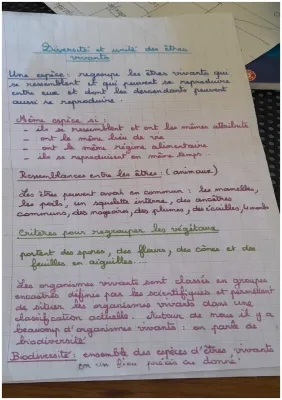 Diversité et unité des êtres
vivants
Une espèce : regroupe les êtres vivants qui
se ressemblent et qui peuvent se reproduire
entre eux et dont les descendants peuvent
aussi se reproduire.
Même espèce si :
- ils se ressemblent et ont les mêmes attributs
- ont le même lieu de vie
- ont le même régime alimentaire
- ils se reproduisent en même temps
Ressemblances entre les êtres : (animaux)
Les êtres peuvent avoir en commun : les mamelles,
les poils, un squelette interne, des ancêtres
communs, des nageoires, des plumes, des écailles,
Critères pour regrouper les végétaux
portent des spores, des fleurs, des cônes et des
feuilles en aiguilles...
Les organismes vivants sont classés en groupes
emboîtés définis par les scientifiques et permettent
de situer les organismes vivants dans une
classification actuelle. Autour de nous il y a
beaucoup d'organismes vivants : on parle de
biodiversité
Biodiversité : ensemble des espèces d'êtres vivants
en un lieu précis ou donné.